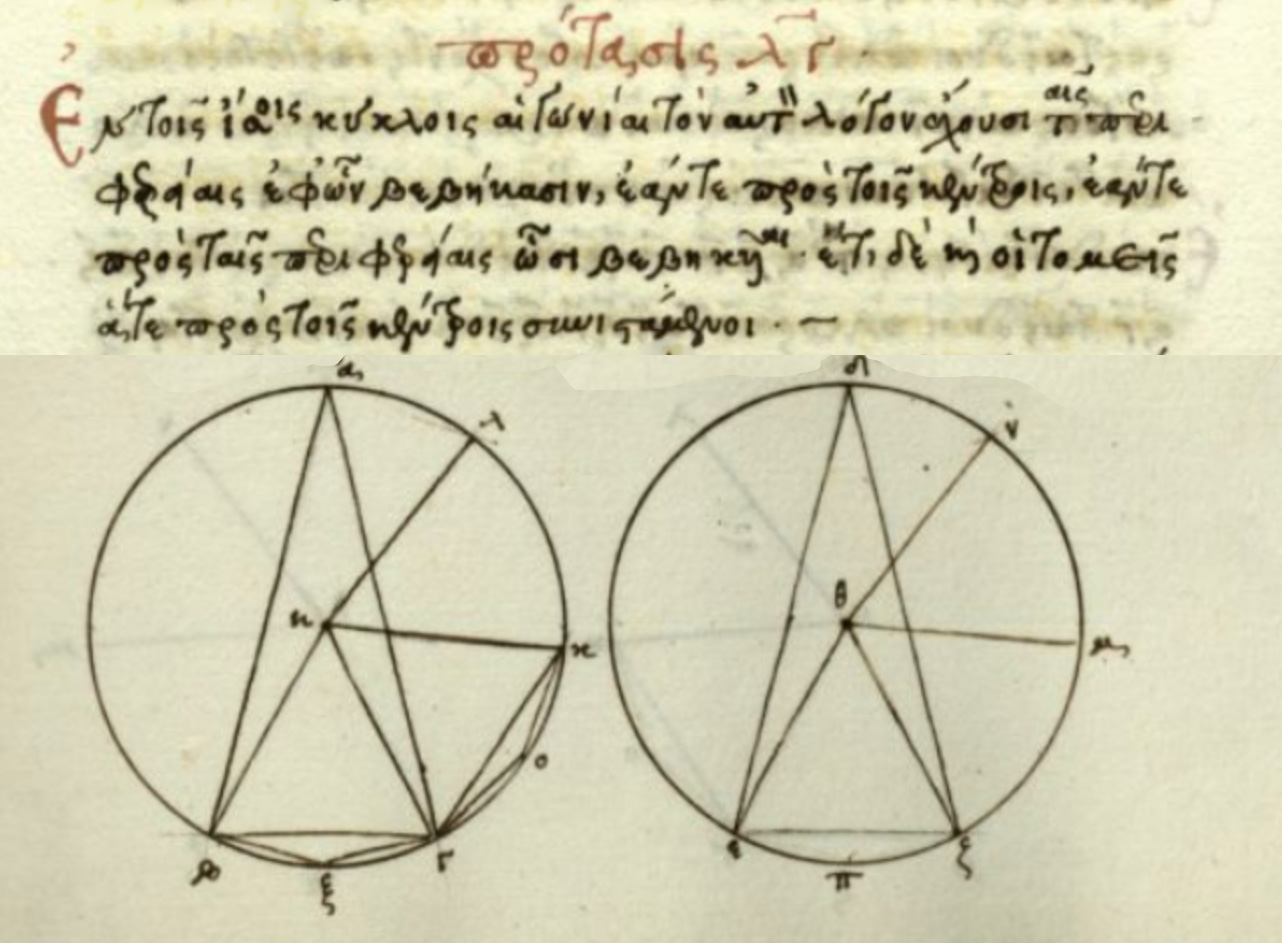 πρότασις λγ
Ἐν τοῖς ἴσοις κύκλοις αἱ γωνίαι τὸν αὐτὸν λόγον ἔχουσι ταῖς περι
φερείαις ἐφ' ὧν βεβήκασιν, ἐάν τε πρὸς τοῖς κέντροις, ἐάν τε
πρὸς ταῖς περιφερείαις ὦσι βεβηκυῖαι · ἔτι δὲ καὶ οἱ τομεῖς
ἅτε πρὸς τοῖς κέντροις συνιστάμενοι · —
α
τ
η
κ
ο
β
ξ
γ
δ
ν
θ
μ
ε
π
ζ